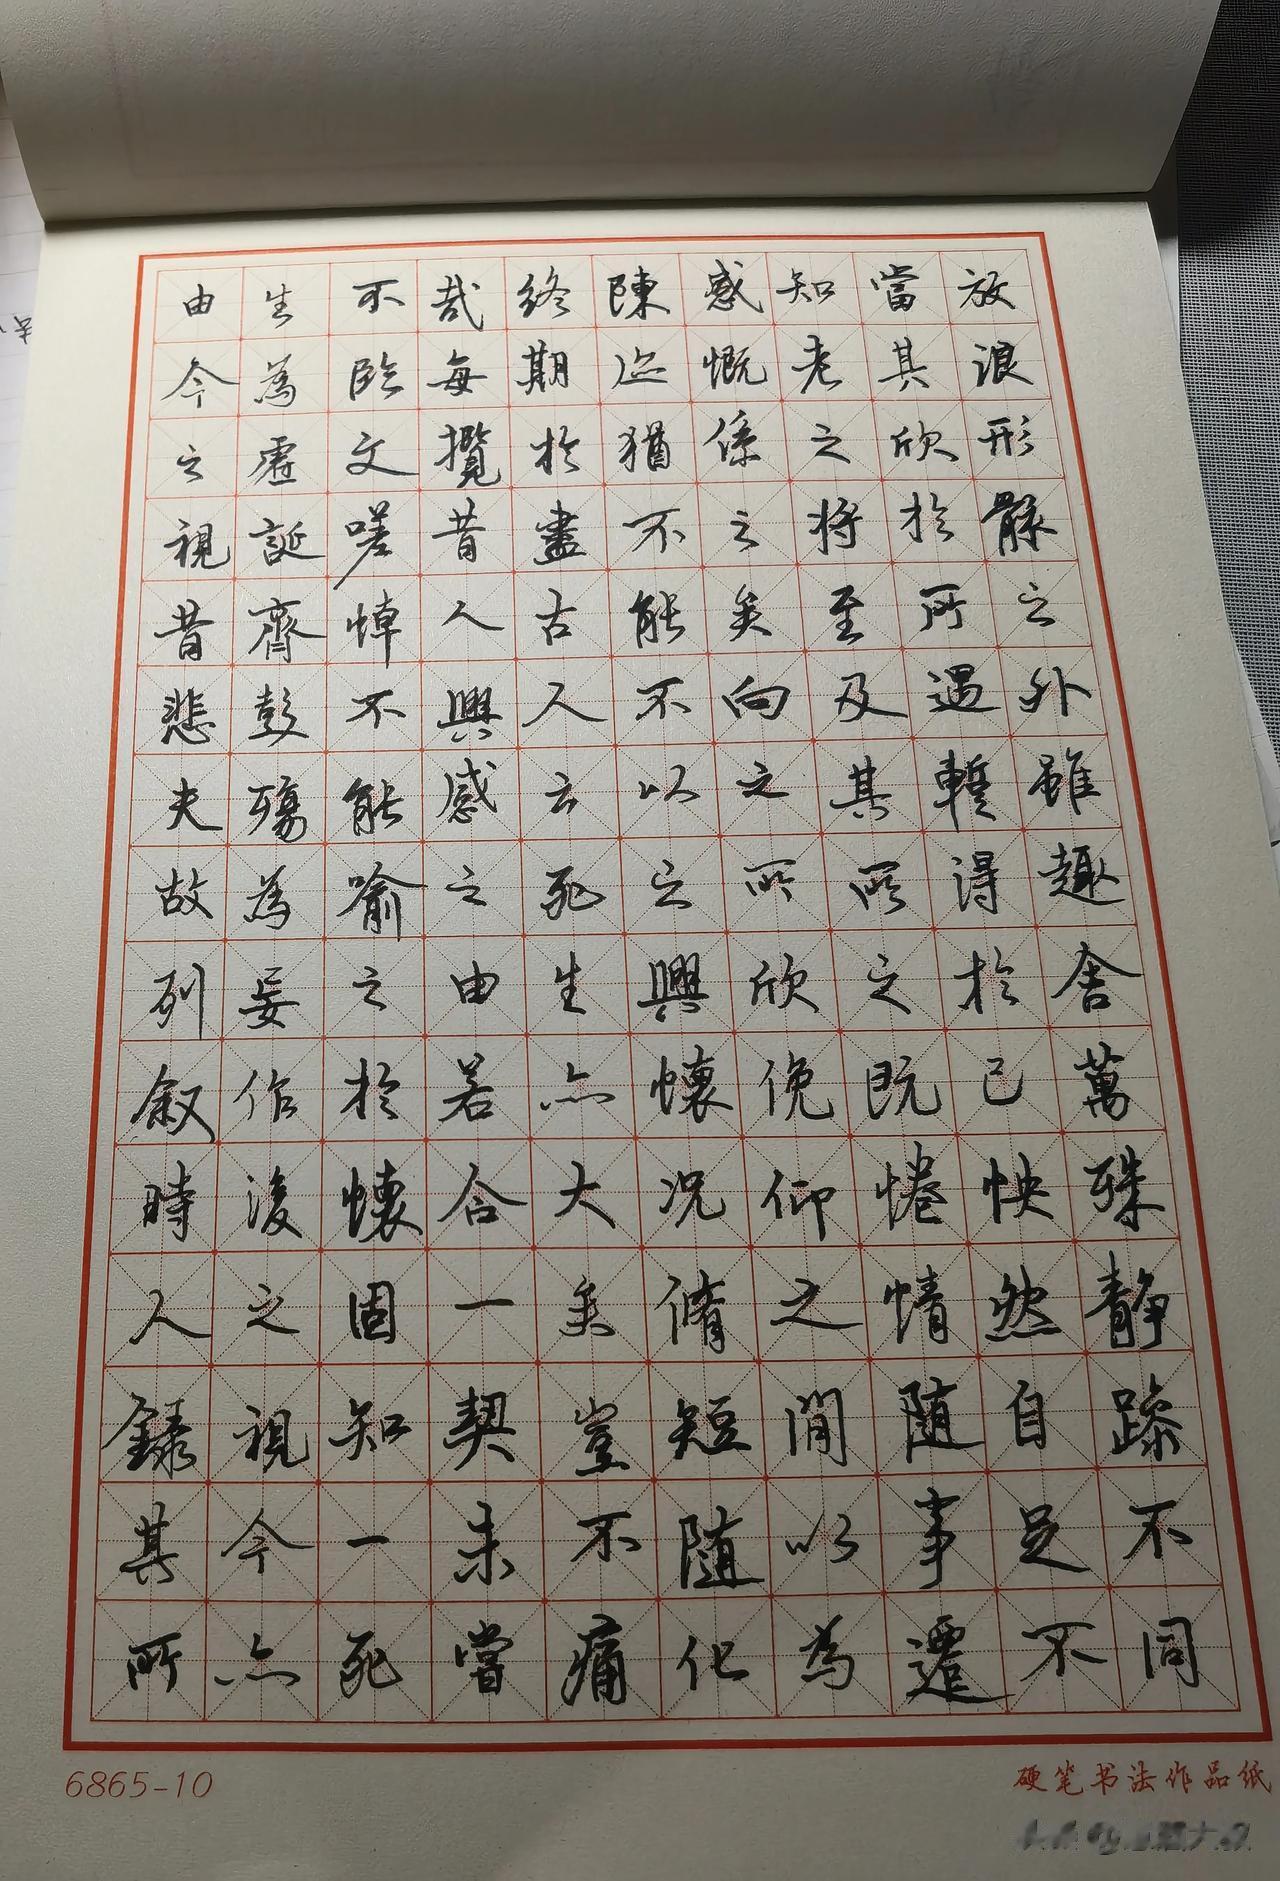 放浪形骸之外雖趣舍萬殊静躁不同
當其欣於所遇蹔得於己怏然自足不
知老之将至及其所之既惓情随事遷
感慨係之矣向之所欣俛仰之閒以為
陳迹猶不能不以之興懷况脩短随化
終期於盡古人云死生亦大矣豈不痛
哉每攬昔人興感之由若合一契未嘗
不臨文嗟悼不能喻之於懷固知一死
生為虛誕齊彭殤為妄作後之視今亦
由今之視昔悲夫故列叙時人録其所
6865-10
硬笔书法作品纸